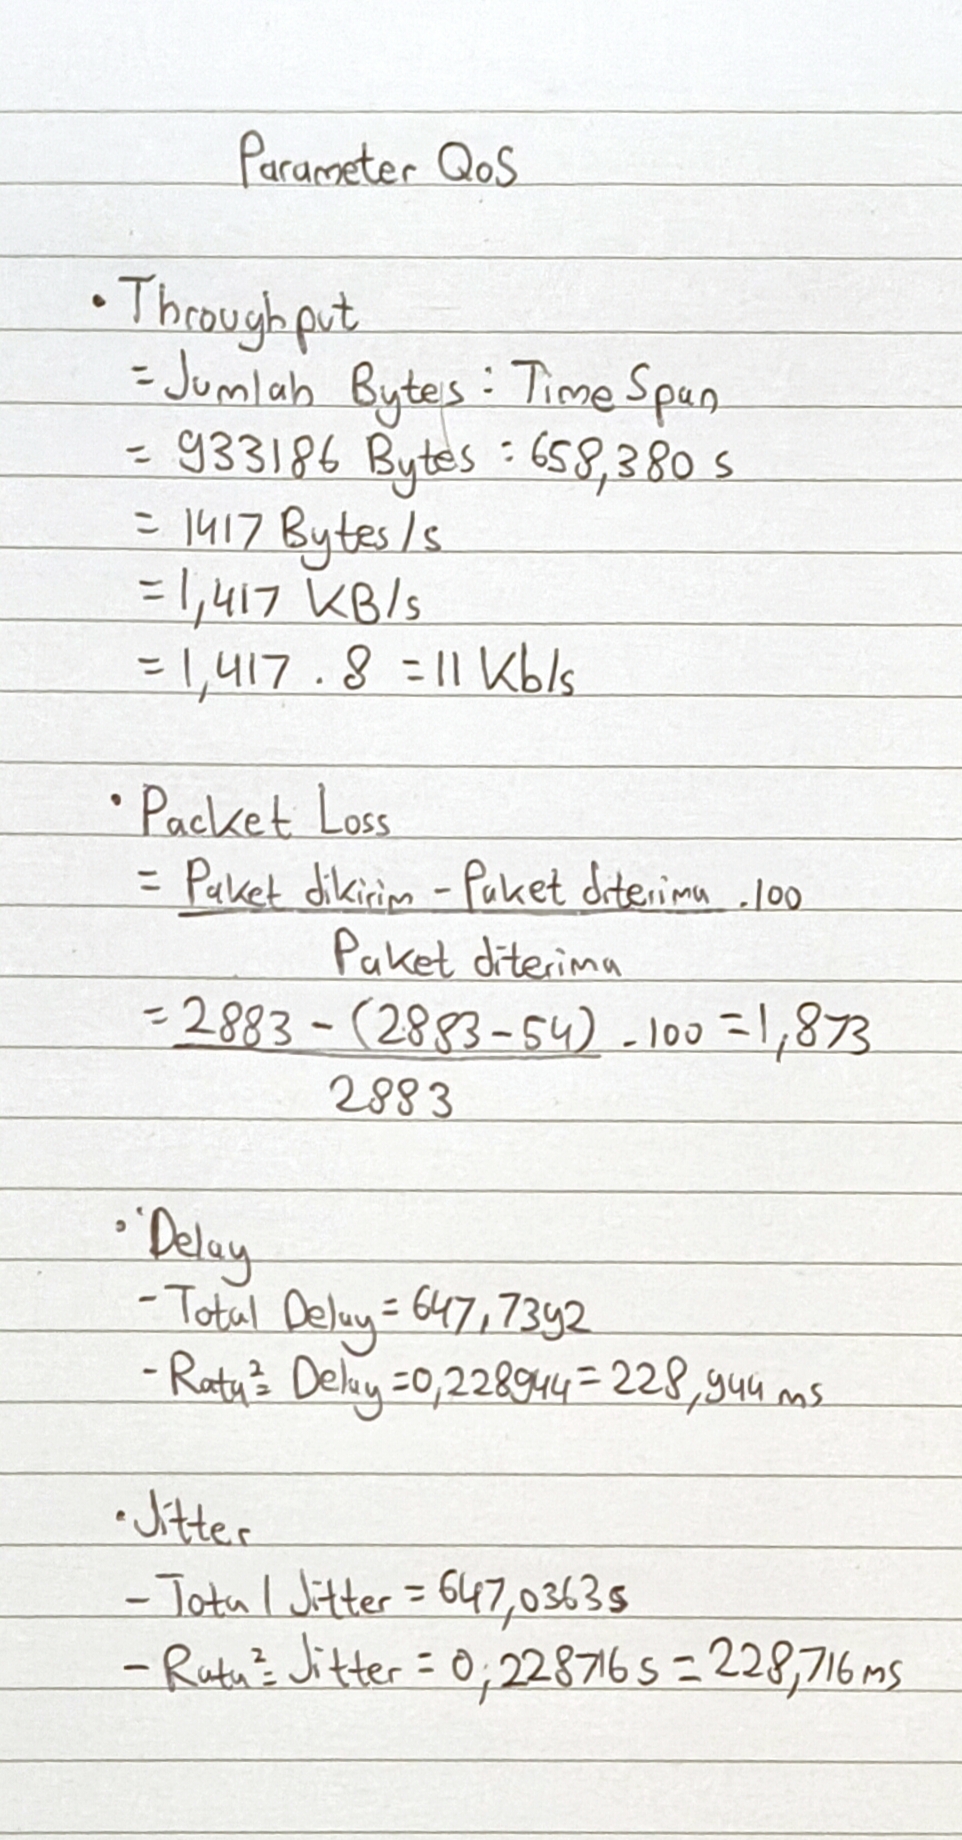 Parameter QoS
• Throughput
= Jumlah Bytes : Time Span
= 933186 Bytes : 658,380 s
= 1417 Bytes/s
= 1,417 KB/s
= 1,417 . 8 = 11 Kb/s
• Packet Loss
= Paket dikirim - Paket diterima . 100
Paket diterima
= 2883 - (2883 - 54) . 100 = 1,873
2883
• Delay
- Total Delay = 647,7392
- Rata² = Delay = 0,228944 = 228,944 ms
• Jitter
- Total Jitter = 647,0363 s
- Rata² = Jitter = 0,228716 s = 228,716 ms